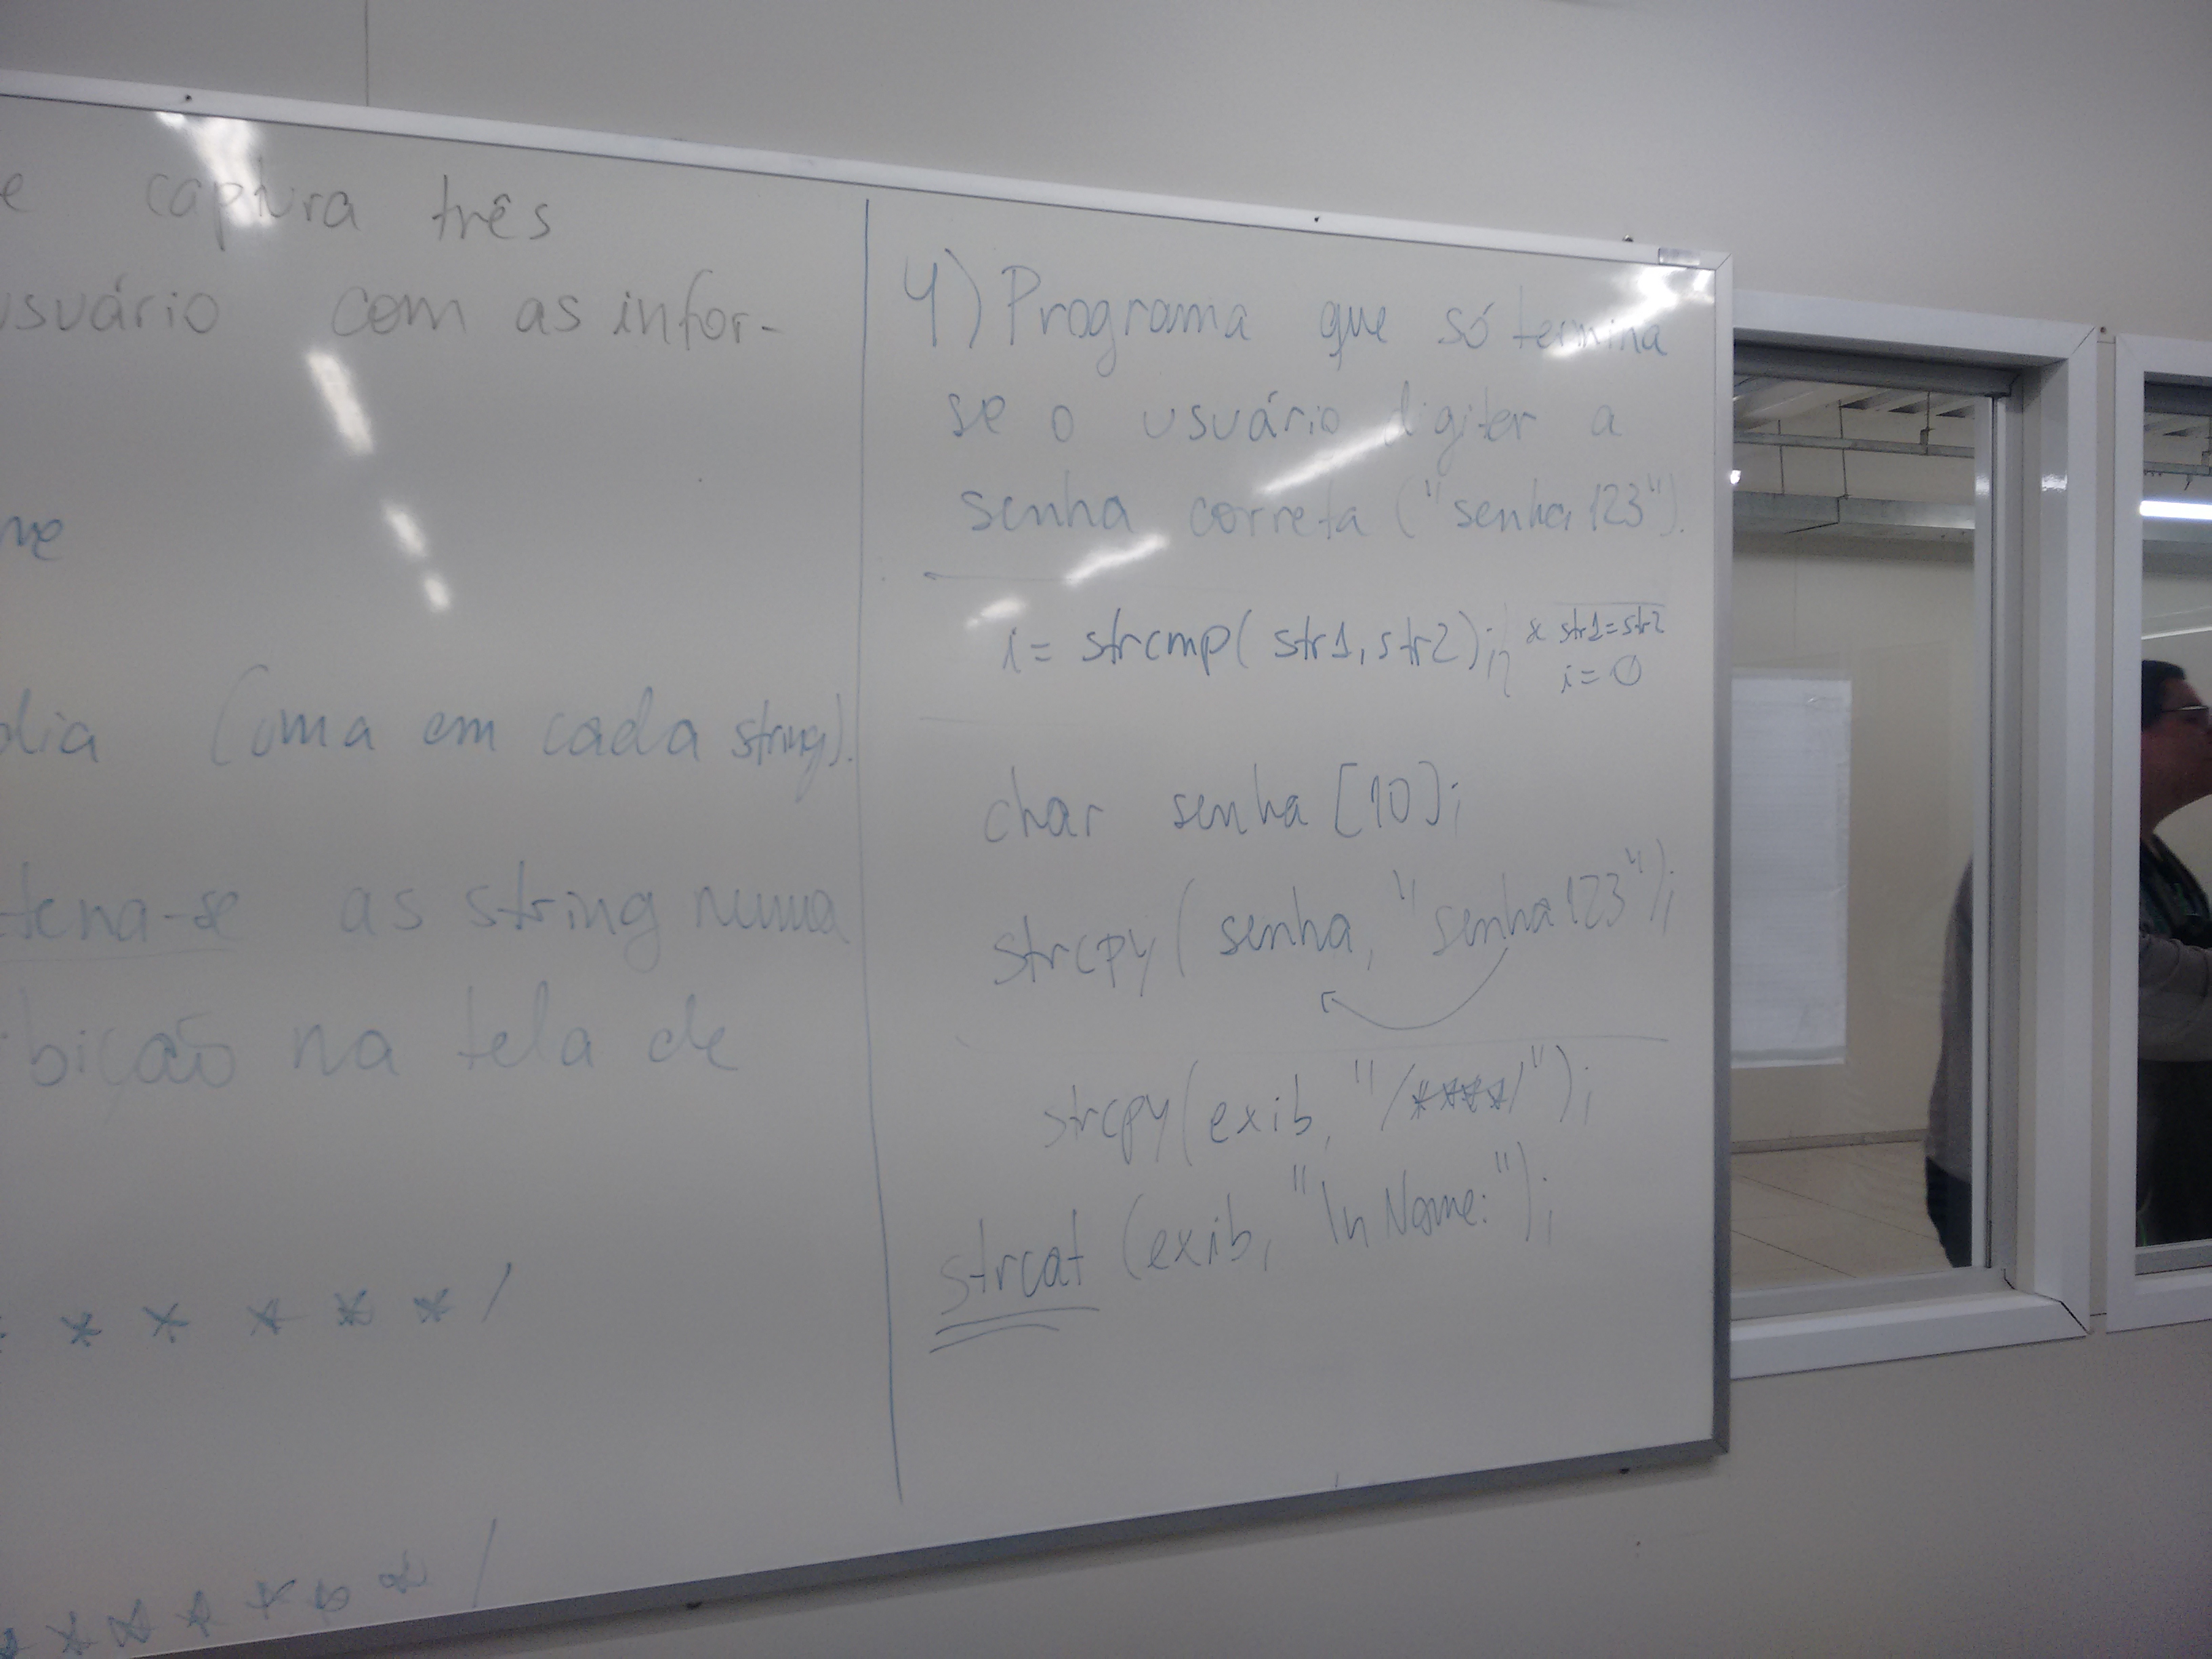 e captura três
usuário com as infor-
me
dia (uma em cada string).
tena-se as string numa
ibição na tela de
* * * * * */
* * * * * * */
4) Programa que só termina
se o usuário digitar a
senha correta ("senha123").
i= strcmp( str1, str2); se str1=str2
i= 0
char senha [10];
strcpy( senha, "senha123");
strcpy(exib, "/****/");
strcat (exib, "\n Nome:");